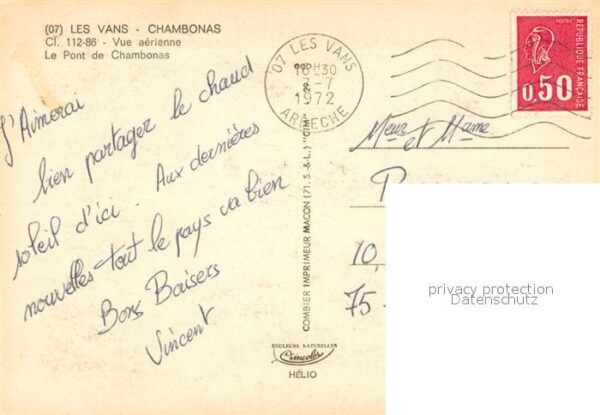 (07) LES VANS - CHAMBONAS
Cl. 112-86 - Vue aérienne
Le Pont de Chambonas
07 LES VANS
16H30
-7
1972
ARDECHE
POSTES
RÉPUBLIQUE FRANÇAISE
0,50
J'Aimerai
bien partager le chaud
soleil d'ici. Aux dernières
nouvelles tout le pays va bien
Bons Baisers
Vincent
COMBIER IMPRIMEUR MACON (71. S.-&-L.) "CIM"
COULEURS NATURELLES
Cimcolor
HÉLIO
Meur et Mame
10,
75-
privacy protection
Datenschutz